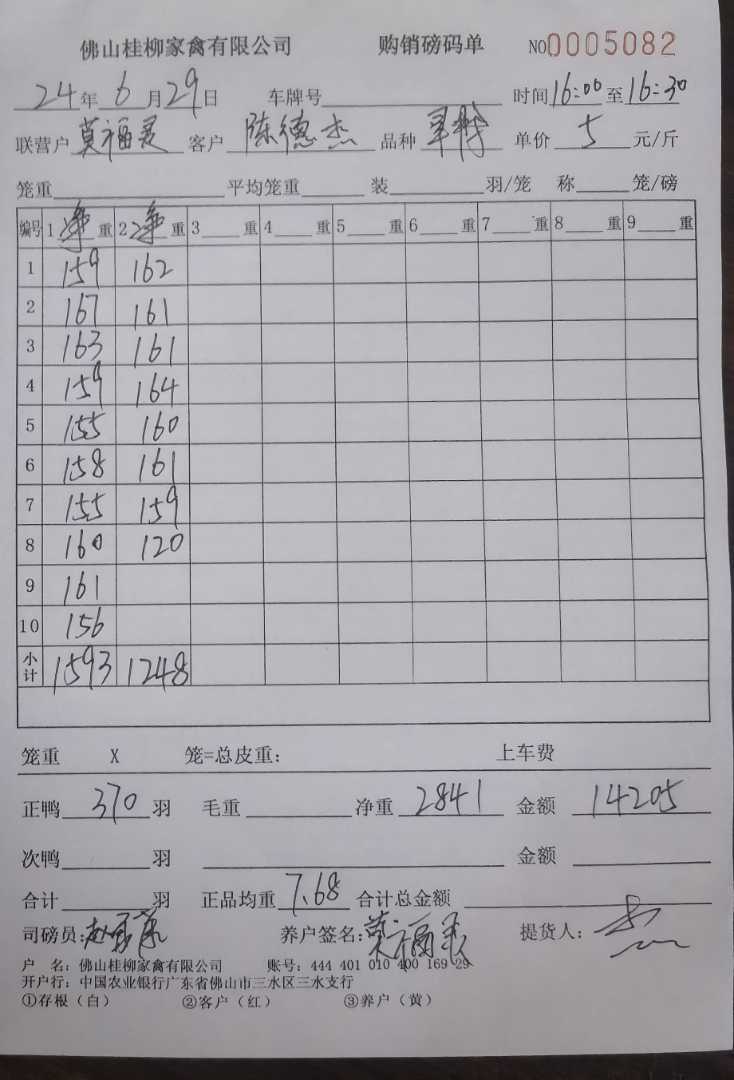 佛山桂柳家禽有限公司 购销磅码单 NO0005082
24年6月29日 车牌号 时间16:00至16:30
联营户 莫福灵 客户 陈德杰 品种 单价 5 元/斤
笼重 平均笼重 装 羽/笼 称 笼/磅
编号 1 净 重 2 净 重 3 重 4 重 5 重 6 重 7 重 8 重 9 重
1 159 162
2 167 161
3 163 161
4 159 164
5 155 160
6 158 161
7 155 159
8 160 120
9 161
10 156
小计 1593 1248
笼重 X 笼=总皮重: 上车费
正鸭 370 羽 毛重 净重 2841 金额 14205
次鸭 羽 金额
合计 羽 正品均重 7.68 合计总金额
司磅员: 养户签名: 莫福灵 提货人:
户 名: 佛山桂柳家禽有限公司 账号: 444 401 010 400 169 29
开户行: 中国农业银行广东省佛山市三水区三水支行
①存根(白) ②客户(红) ③养户(黄)